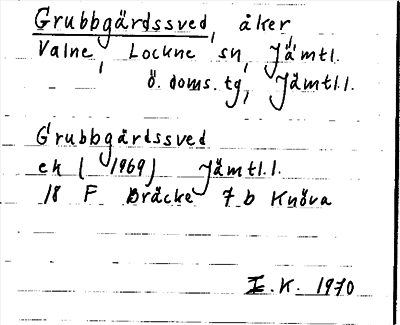 Grubbgärdssved, åker
Valne, Lockne sn, Jämtl.
ö. doms. tg, Jämtl.l.
Grubbgärdssved
ek (1969) Jämtl.l.
18 F Bräcke 7 b Knöva
I.K. 1970